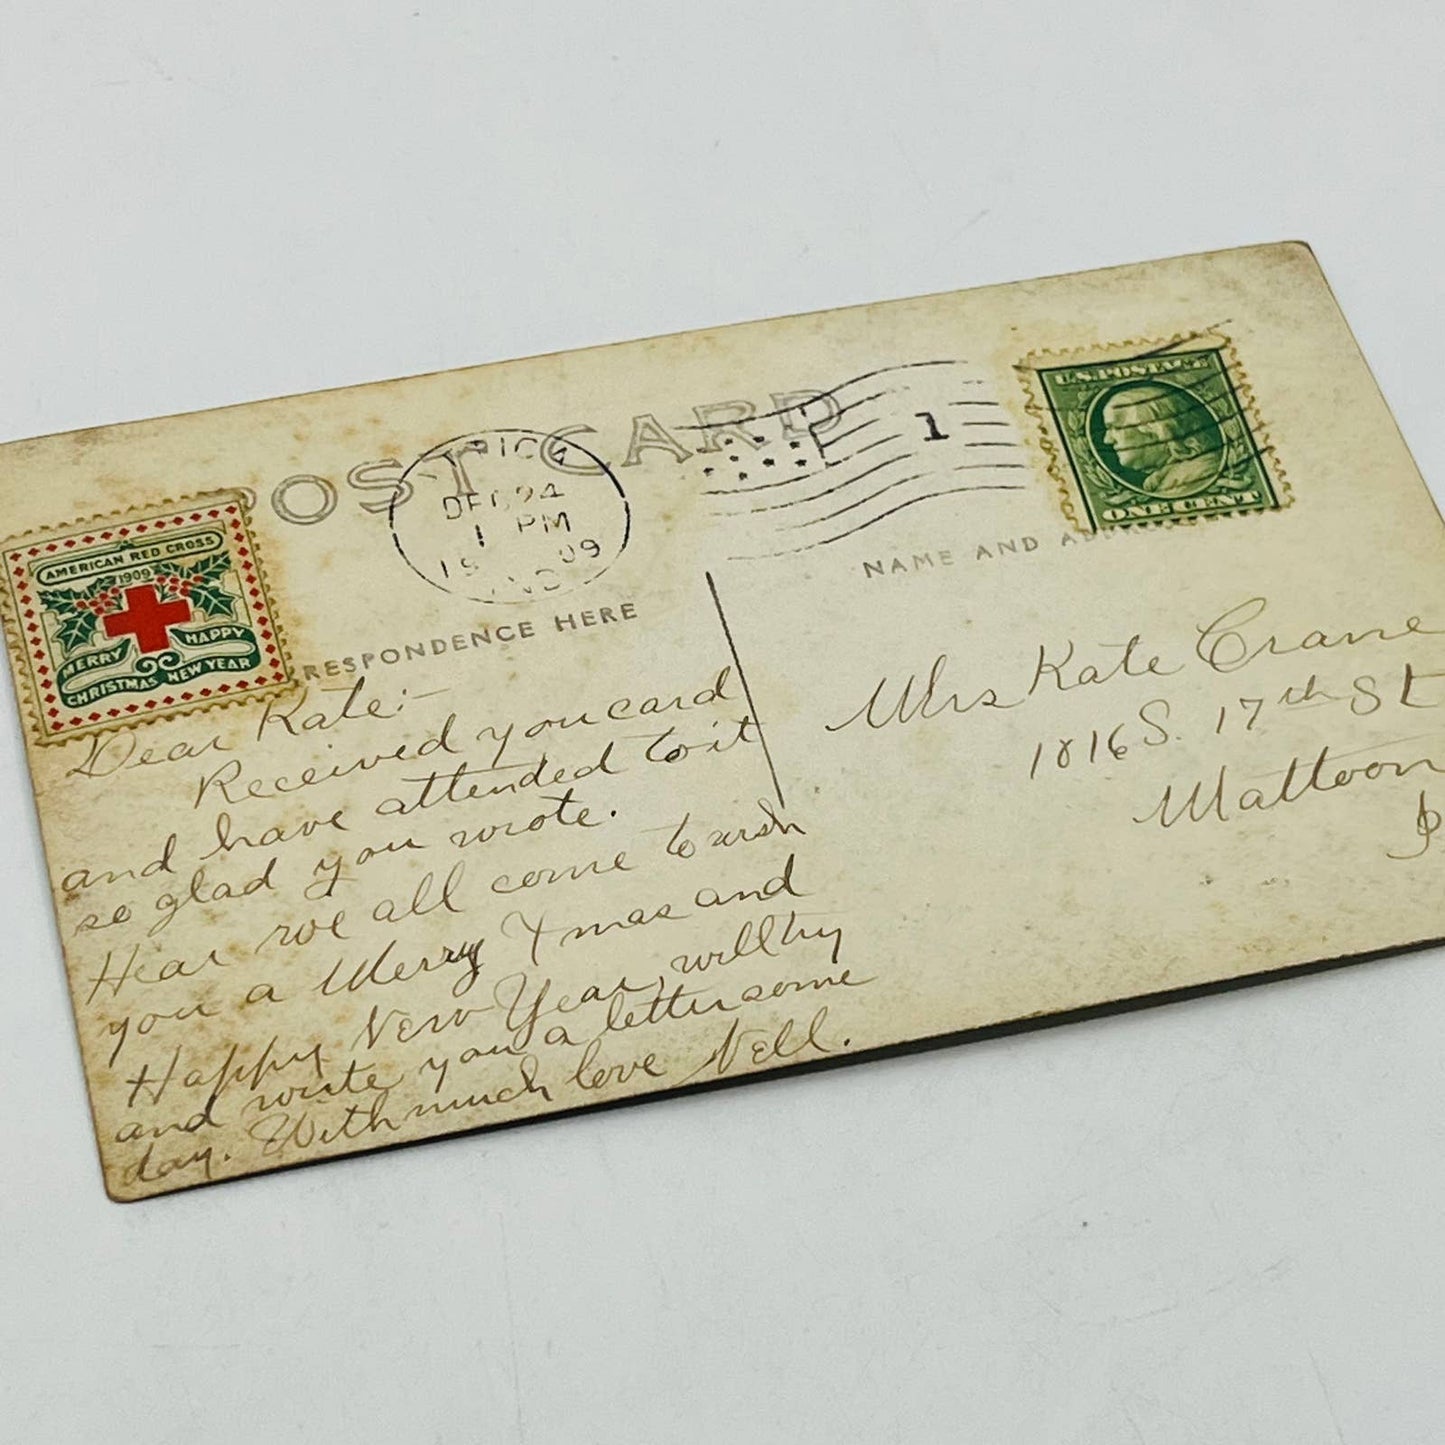 POST CARD
DEC 24
1 PM
09
IND
1
U.S. POSTAGE
ONE CENT
AMERICAN RED CROSS
1909
MERRY HAPPY
CHRISTMAS NEW YEAR
RESPONDENCE HERE
NAME AND
Dear Kate:-
Received you card
and have attended to it
so glad you wrote.
Hear we all come to wish
you a Merry Xmas and
Happy New Year, will try
and write you a letter some
day. With much love Nell.
Mrs Kate Crane
1816 S. 17th St
Mattoon